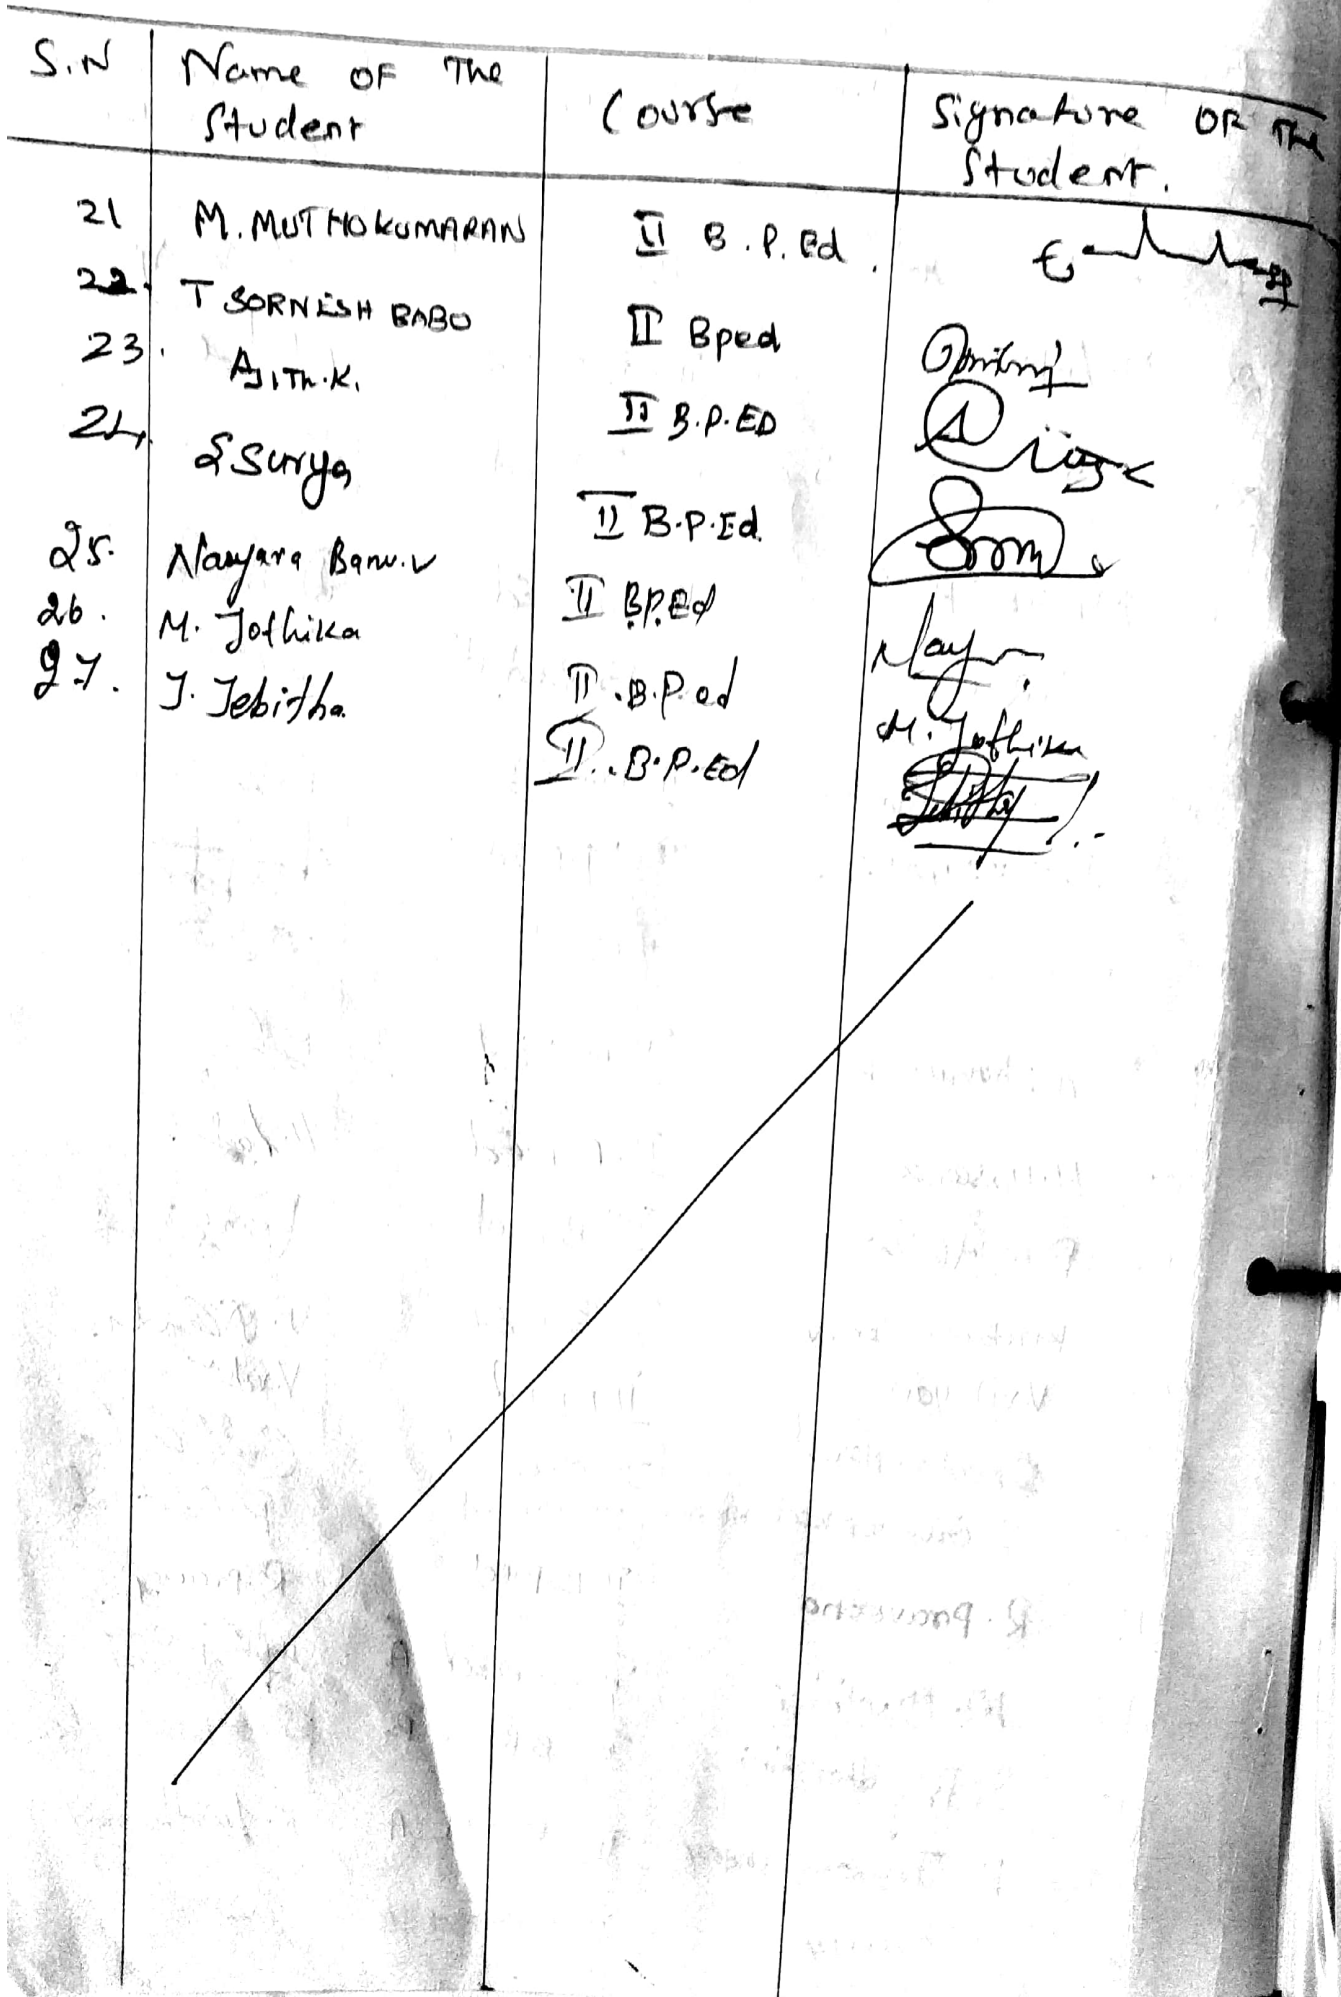 S.N Name OF The Student Course Signature OF The Student.
21 M. MUTHUKUMARAN II B.P.Ed.
22. T SORNESH BABU II Bped
23. AJITH.K. II B.P.ED
24. S Surya II B.P.Ed.
25. Nayara Banu.V II B.P.Ed
26. M. Jothika II.B.P.ed M. Jothika
27. J. Jebitha II.B.P.Ed